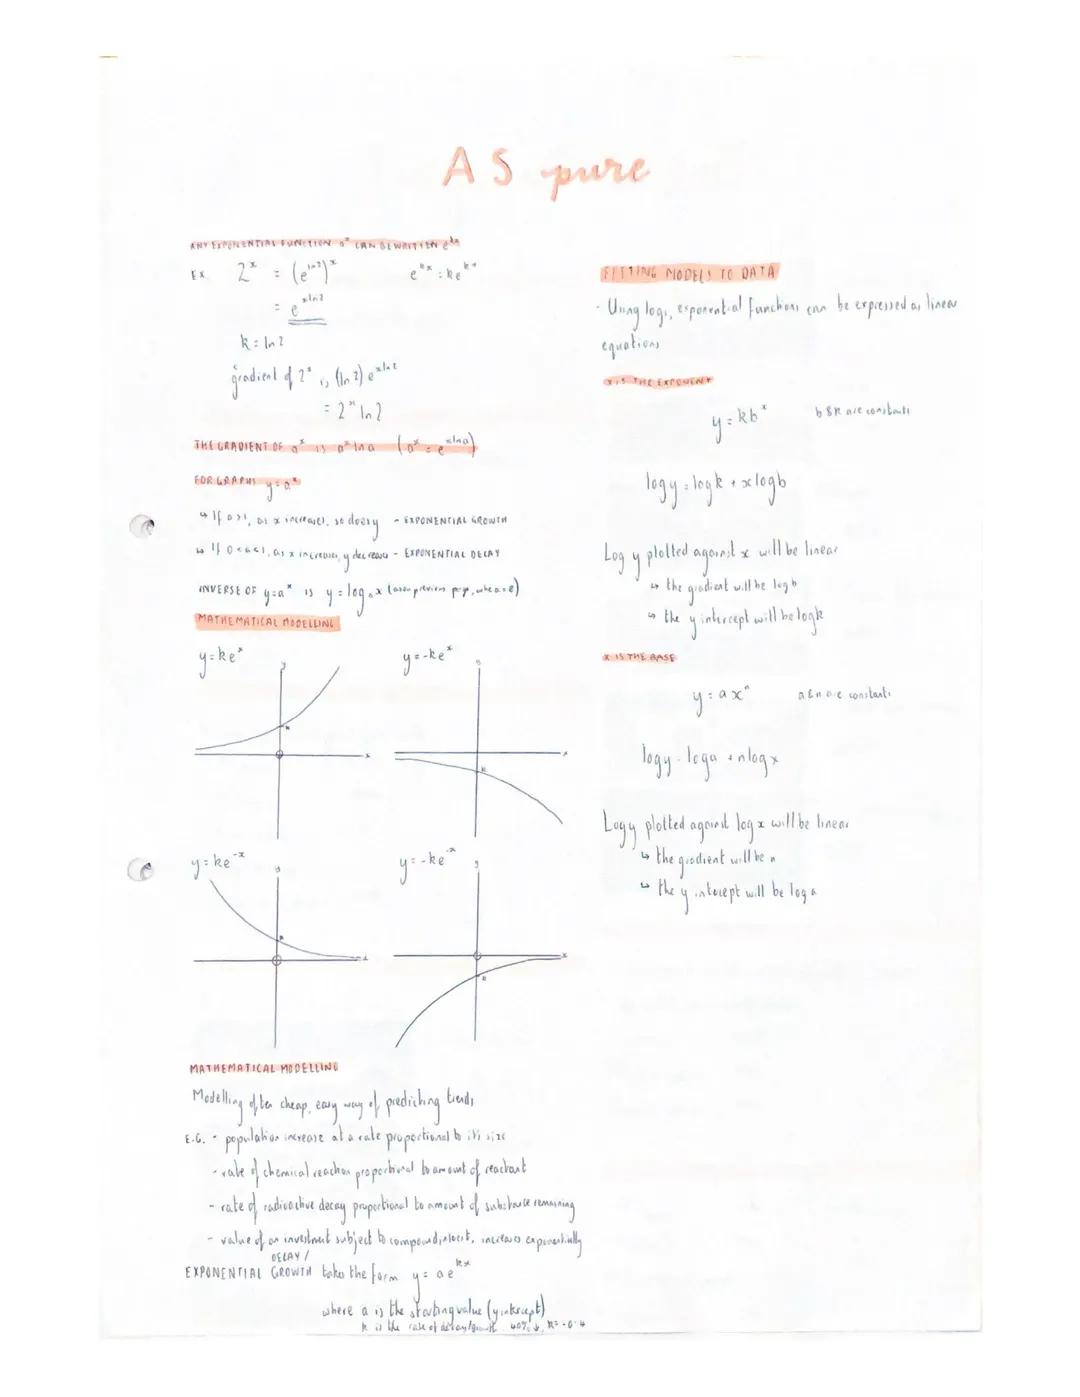 AS pure
ANY EXPONENTIAL FUNCTION aˣ CAN BE WRITTEN e^kx
EX. 2ˣ = (e^ln2)ˣ
e^kx : ke^kx
= e^xln2
k = ln2
gradient of 2ˣ is (ln2)e^xln2
= 2ˣ ln2
THE GRADIENT OF aˣ IS aˣ lna (aˣ = e^xlna)
FOR GRAPHS y=aˣ
↳ If a>1, as x increases, so does y - EXPONENTIAL GROWTH
↳ If 0<a<1, as x increases, y decreases - EXPONENTIAL DECAY
INVERSE OF y=aˣ IS y=logₐx (as on previous page, where a=e)
MATHEMATICAL MODELLING
y=keˣ
y
k
x
y=-keˣ
y
k
x
y=ke⁻ˣ
y
k
x
y=-ke⁻ˣ
y
k
x
MATHEMATICAL MODELLING
Modelling often cheap, easy way of predicting trends
E.G. - population increase at a rate proportional to its size
- rate of chemical reaction proportional to amount of reactant
- rate of radioactive decay proportional to amount of substance remaining
- value of an investment subject to compound interest, increases exponentially
DECAY /
EXPONENTIAL GROWTH takes the form y = ae^kx
where a is the starting value (y intercept)
k is the rate of decay/growth 40% ↓, k = -0.4
FITTING MODELS TO DATA
- Using logs, exponential functions can be expressed as linear
equations
X IS THE EXPONENT
y = kbˣ b & k are constants
logy = logk + xlogb
Log y plotted against x will be linear
↳ the gradient will be logb
↳ the y intercept will be logk
X IS THE BASE
y = axⁿ a & n are constants
logy = loga + nlogx
Logy plotted against logx will be linear
↳ the gradient will be n
↳ the y intercept will be log a